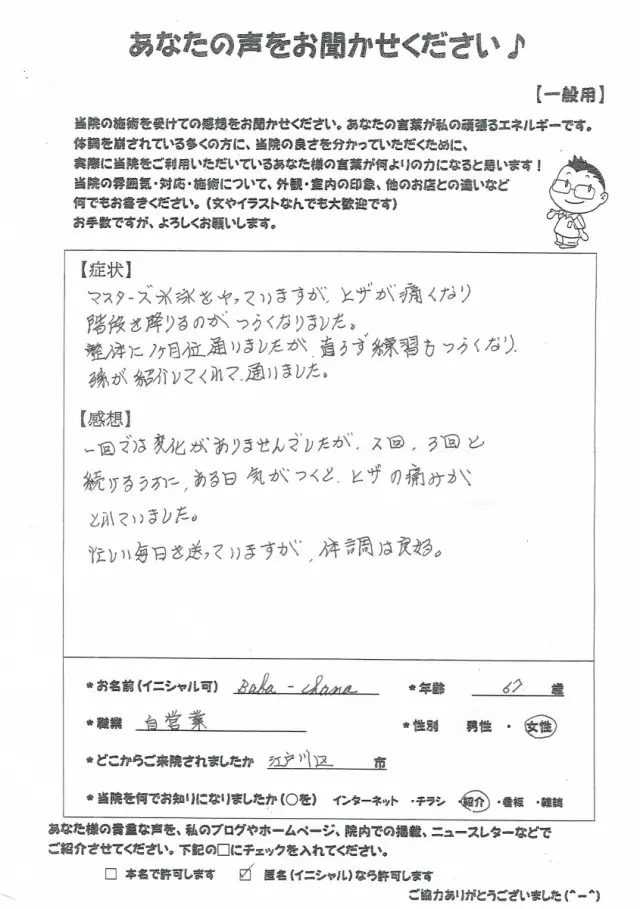 あなたの声をお聞かせください♪
【一般用】
当院の施術を受けての感想をお聞かせください。あなたの言葉が私の頑張るエネルギーです。
体調を崩されている多くの方に、当院の良さを分かっていただくために、
実際に当院をご利用いただいているあなた様の言葉が何よりの力になると思います!
当院の雰囲気・対応・施術について、外観・室内の印象、他のお店との違いなど
何でもお書きください。(文やイラストなんでも大歓迎です)
お手数ですが、よろしくお願いします。
【症状】
マスターズ水泳をやっていますが、ヒザが痛くなり
階段を降りるのがつらくなりました。
整体に1ヶ月位通りましたが、直らず練習もつらくなり、
孫が紹介してくれて、通りました。
【感想】
一回では変化がありませんでしたが、2回、3回と
続けるうちに、ある日気がつくと、ヒザの痛みが
とれていました。
忙しい毎日を送っていますが、体調は良好。
*お名前(イニシャル可) Baba-chama *年齢 67 歳
*職業 自営業 *性別 男性・女性
*どこからご来院されましたか 江戸川区 市
*当院を何でお知りになりましたか(○を) インターネット・チラシ・紹介・看板・雑誌
あなた様の貴重な声を、私のブログやホームページ、院内での掲載、ニュースレターなどで
ご紹介させてください。下記の□にチェックを入れてください。
□ 本名で許可します ☑ 匿名(イニシャル)なら許可します
ご協力ありがとうございました(^-^)